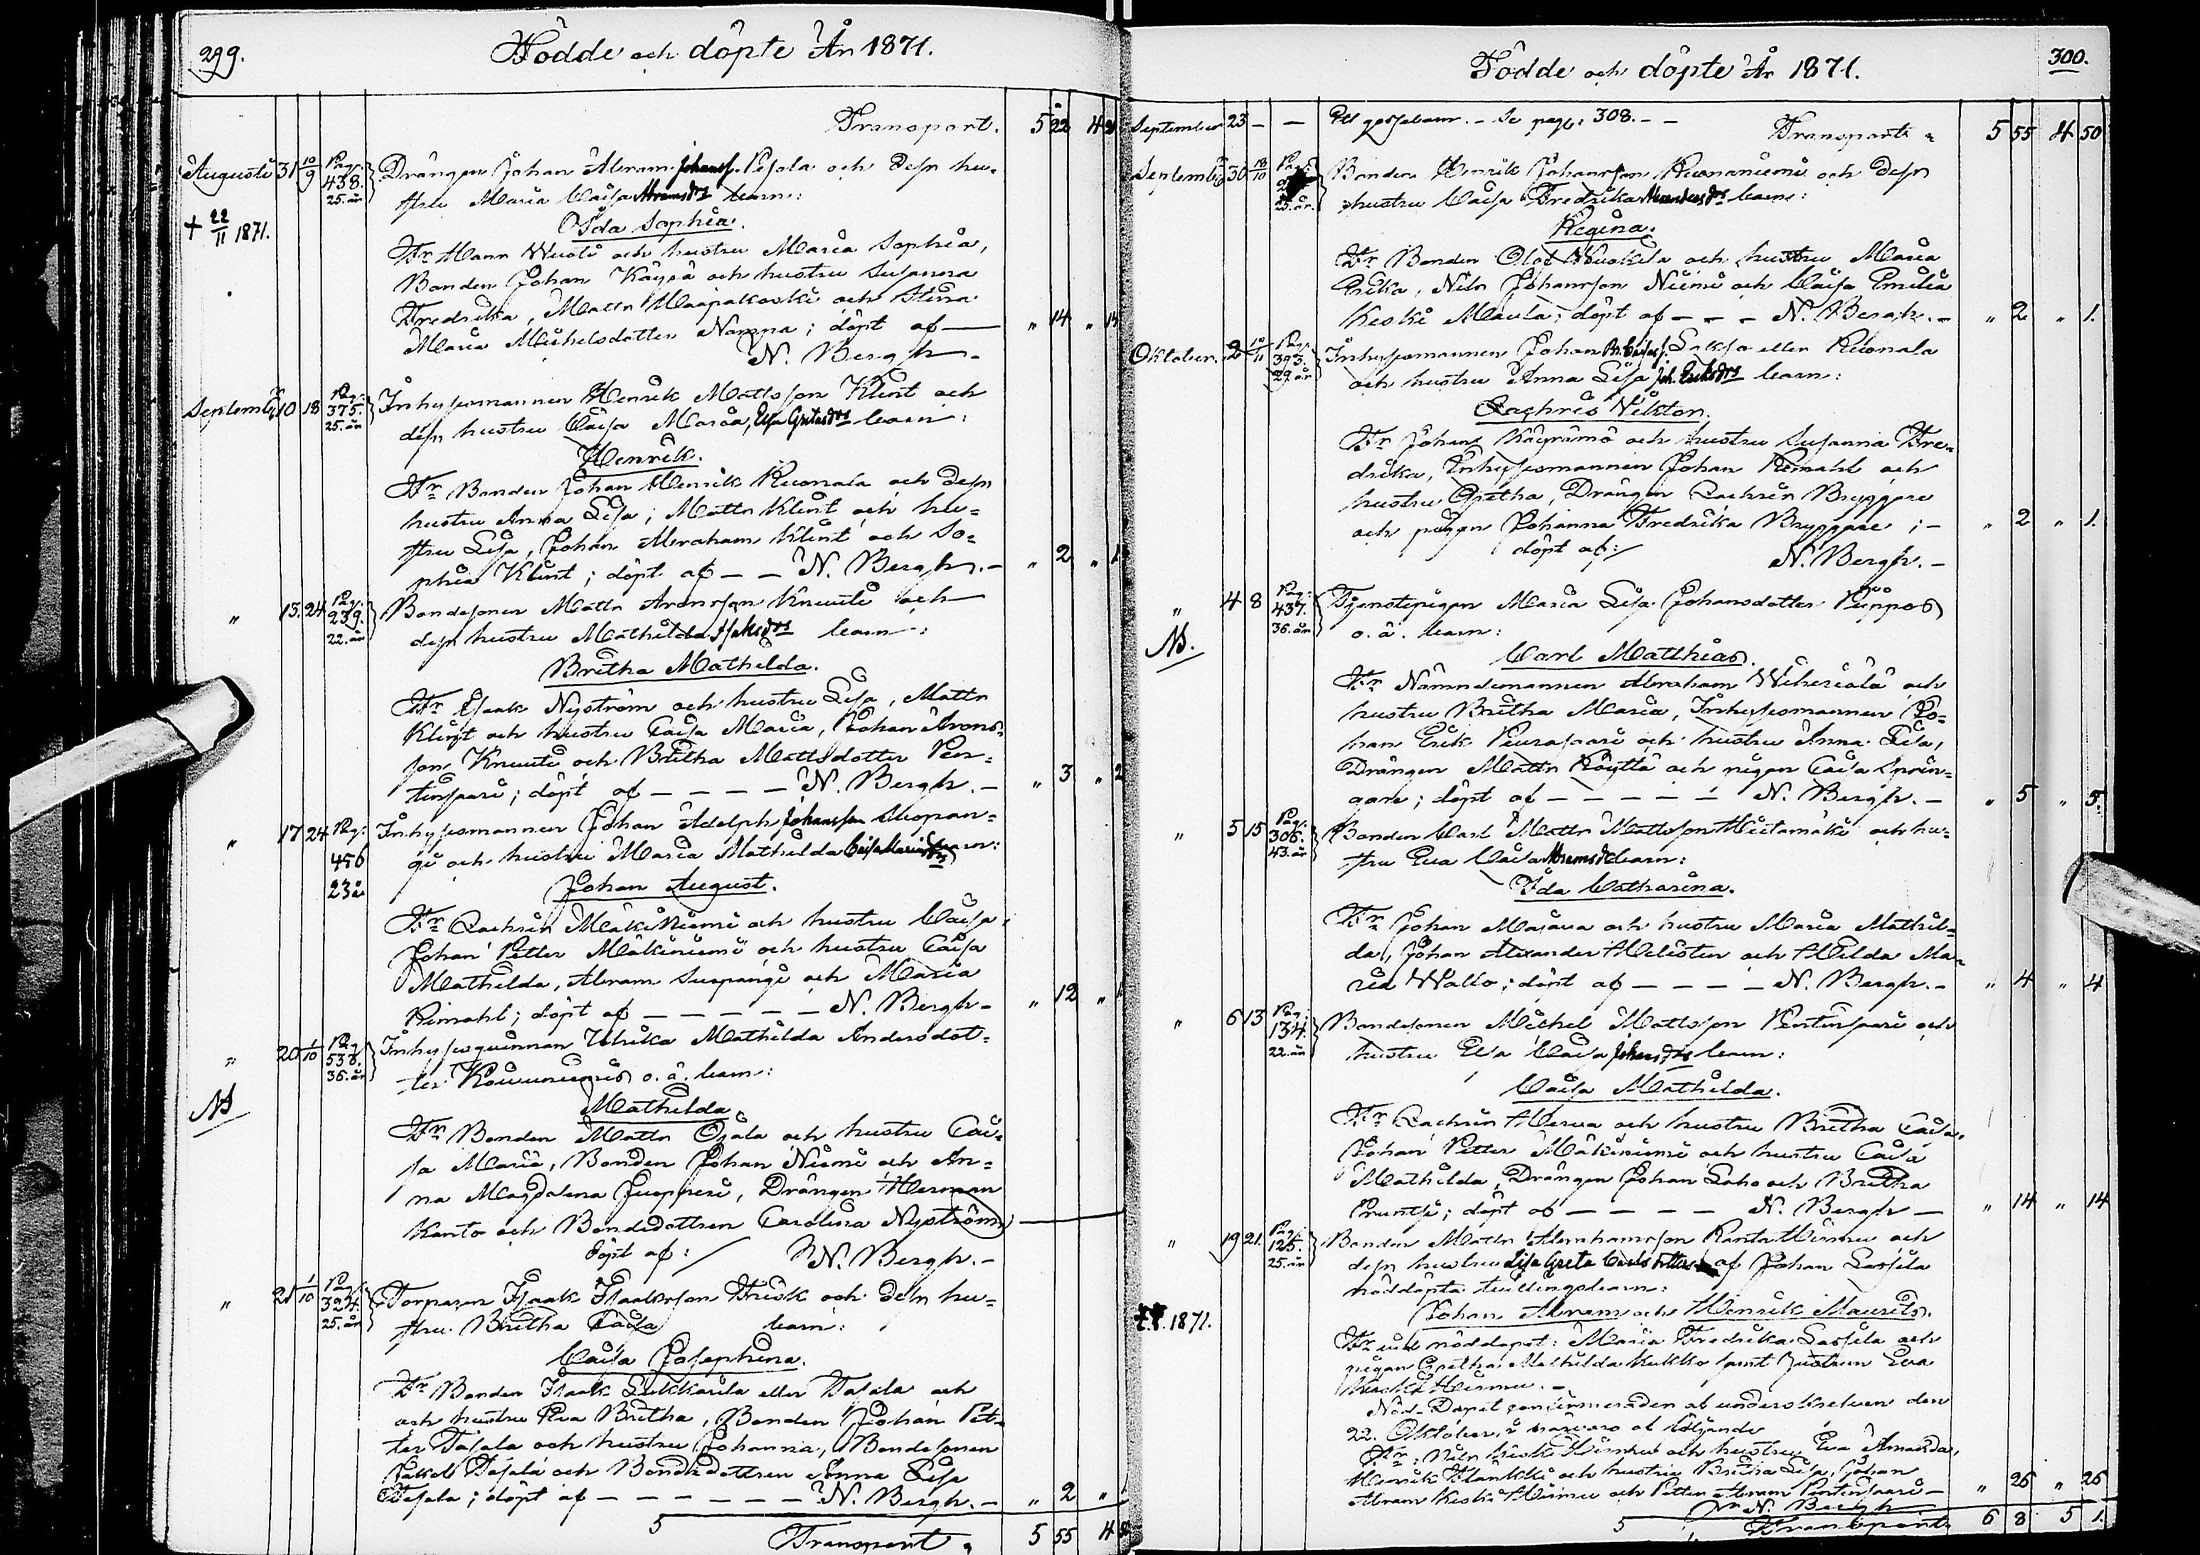 299.
Födde och döpte År 1871.
Transport. 5 22 4
Augusti 31 10/9 Pag: 438. 25. år Drängen Johan Abram Johanss. Pesola och dess hu-
stru Maria Caisa Abramsdr barn:
+ 22/11 1871. Ida Sophia.
Fr Mann Wuoti och hustru Maria Sophia,
Bonden Johan Käyrä och hustru Susanna
Fredrika, Matts Haapakoski och Stina
Maria Michelsdotter Nappa; döpt af — " 14 "
N. Bergh.
September 10 18 Pag: 375. 25. år Inhysesmannen Henrik Mattsson Klint och
dess hustru Caisa Maria, Eva Gretasdr barn:
Henrik.
Fr Bonden Johan Henrik Ruonala och dess
hustru Anna Lisa; Matts Klint och hu-
stru Lisa, Johan Abraham Klint och So-
phia Klint; döpt af — — N. Bergh. — " 2 " 1
" 13. 24 Pag: 239. 22. år Bondesonen Matts Aronsson Knuuti och
dess hustru Mathilda Isaksdr barn:
Britha Mathilda.
Fr Isaak Nyström och hustru Lisa, Matts
Klint och hustru Caisa Maria, Johan Arons-
son Knuuti och Britha Mattsdotter Per-
tinpare; döpt af — — — — N. Bergh. — " 3 " 2
" 17 24 Pag: 456 23 år Inhysesmannen Johan Adolph Johansson Suopan-
gi och hustru Maria Mathilda barn:
Johan August.
Fr Zachris Mäkiniemi och hustru Caisa,
Johan Petter Mäkiniemi och hustru Caisa
Mathilda, Abram Suopangi och Maria
Rimahl; döpt af — — — — — N. Bergh — " 12 "
" 20 1/10 Pag 538. 36. år Inhysesqvinnan Ulrika Mathilda Andersdot-
ter Kouvuniemis o. ä. barn:
NB Mathilda.
Fr Bonden Matts Ojala och hustru Cai-
sa Maria, Bonden Johan Niemi och An-
na Magdalena Juopperi, Drängen Herman
Kanto och Bondedottren Carolina Nyström
döpt af: / N. Bergh. —
" 21 1/10 Pag: 324. 25. år Torparen Isaak Isaaksson Frisk och dess hu-
stru Britha Caisa barn:
Caisa Josephina.
Fr Bonden Isaak Liukkaila eller Tasala och
och hustru Eva Britha, Bonden Johan Pet-
ter Tasala och hustru Johanna, Bondesonen
Jakob Tasala och Bondedottren Anna Lisa
Tasala; döpt af — — — — — — N. Bergh. — " 2 "
5 Transport 5 55 4
Födde och döpte År 1871.
300.
September 23 — — Ett gossebarn. — Se pag: 308. — — Transport 5 55 4 50
September 30 18/10 25. år. Bonden Henrik Johansson Ruonaniemi och dess
hustru Caisa Fredrika barn:
Regina.
Fr Bonden Olof Kuokila och hustru Maria
Erika, Nils Johansson Niemi och Caisa Emilia
Keski Maula; döpt af — — — N. Bergh. — " 2 " 1.
Oktober. 2 Pag: 393. 29. år Inhysesmannen Johan eller Ruonala
och hustru Anna Lisa Joh. Eriksdr barn:
Zachris Viktor.
Fr Johan Käyrämä och hustru Susanna Fre-
drika, Inhysesmannen Johan Rimahl och
hustru Gretha, Drängen Zachris Bryggare
och pigan Johanna Fredrika Bryggare; — " 2 " 1.
döpt af: / N. Bergh. —
" 4 8 Pag: 437. 36. år Tjenstepigan Maria Lisa Johansdotter Piippos
o. ä. barn:
NB. Carl Matthias.
Fr Nämndemannen Abraham Wiheriälä och
hustru Britha Maria, Inhysesmannen Jo-
han Erik Peurasaari och hustru Anna Lisa,
Drängen Matts Röyttä och pigan Caisa Sprin-
gare; döpt af — — — — — N. Bergh. — " 5 " 5.
" 5 15 Pag: 306. 43. år Bonden Carl Matts Mattsson Hietamäki och hu-
stru Eva Caisa Abramsdr barn:
Ida Catharina.
Fr Johan Majava och hustru Maria Mathil-
da, Johan Alexander Helisten och Hilda Ma-
ria Wallo; döpt af — — — — N. Bergh. — " 4 " 4
" 6 13 Pag: 134. 22. år Bondesonen Michel Mattsson Pertinpare och
hustru Eva Caisa Johansdr barn:
Caisa Mathilda.
Fr Zachris Herva och hustru Britha Caisa,
Johan Petter Mäkiniemi och hustru Caisa
Mathilda, Drängen Johan Laho och Britha
Pruntsi; döpt af — — — — N. Bergh — " 14 " 14
" 19 21. Pag: 125. 25. år Bonden Matts Abrahamsson Ranta Hirmu och
dess hustru Lisa Greta Carlsdotters af Johan Lassila
nöddöpta tvillingebarn:
1871. Johan Abram och Henrik Maurits.
Fr vid nöddopet: Maria Fredrika Lassila och
pigan Gretha Mathilda Kukko samt hustrun Eva
Keski Hirmu. —
Nöd-Dopet confirmeraden af underskrifven den
22. Oktober, i närvaro af följande
Fr. Nils Keski Hirmu och hustru Eva Amanda,
Henrik Klankki och hustru Britha Lisa, Johan
Abram Keski Hirmu och Petter Abram Pertinpaare — " 26 " 26
N. Bergh
5 Transport 6 8 5 1.